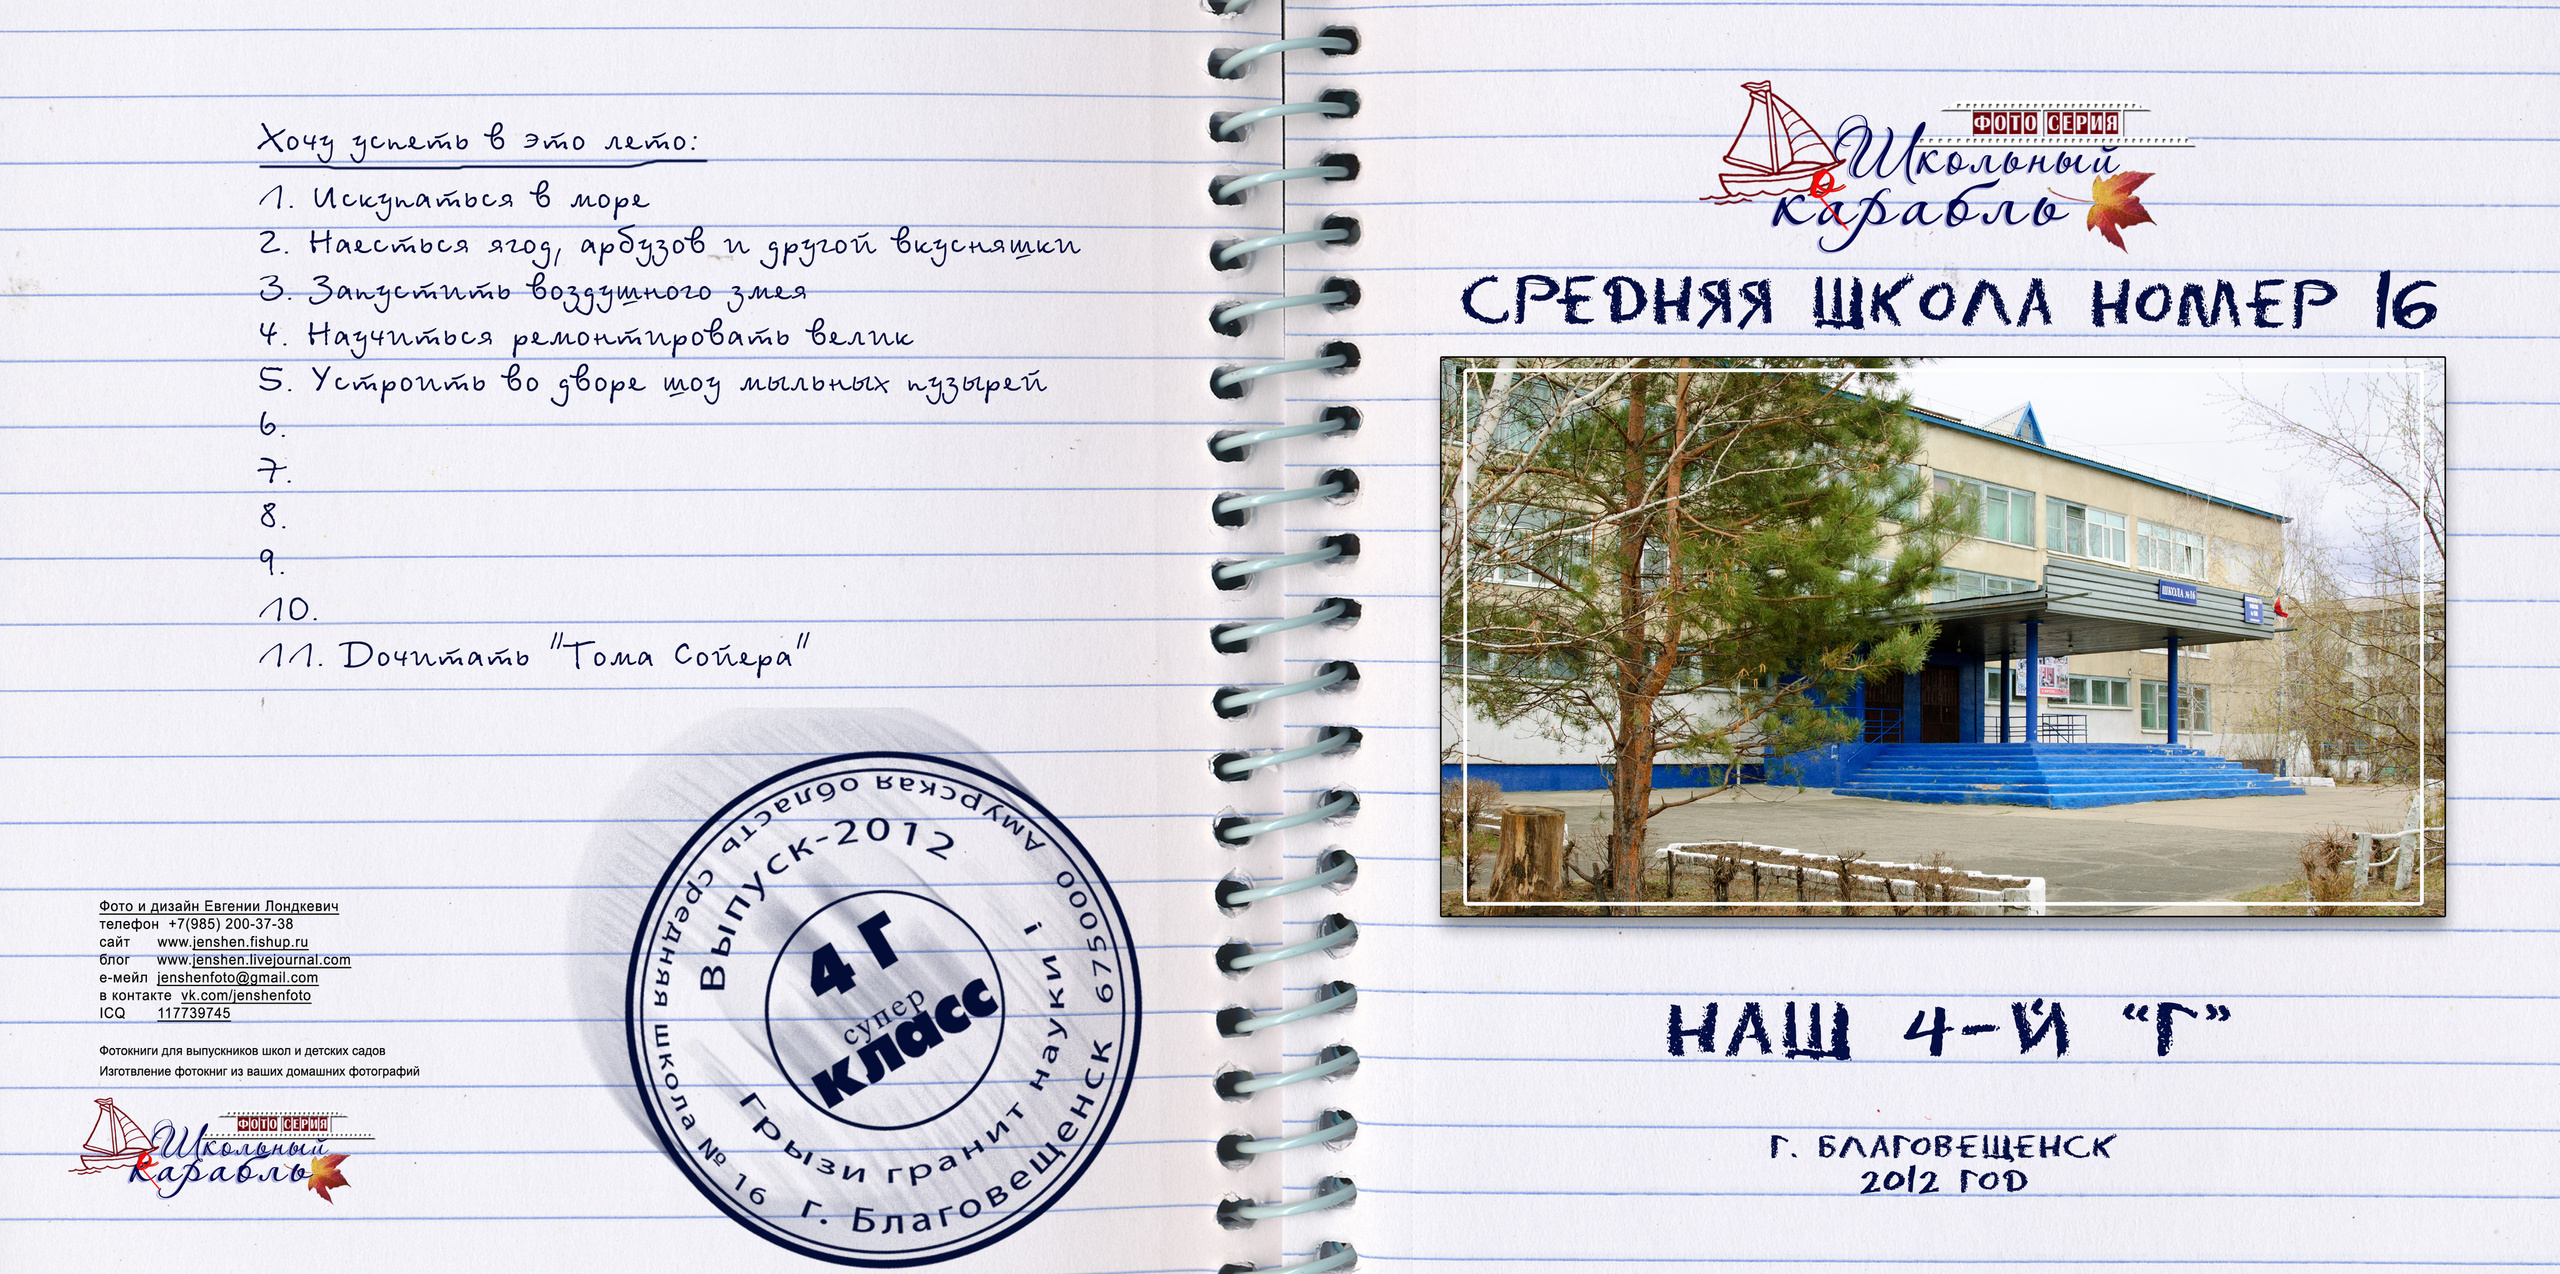 Хочу успеть в это лето:
1. Искупаться в море
2. Наесться ягод, арбузов и другой вкусняшки
3. Запустить воздушного змея
4. Научиться ремонтировать велик
5. Устроить во дворе шоу мыльных пузырей
6.
7.
8.
9.
10.
11. Дочитать "Тома Сойера"
Амурская область средняя школа № 16
г. Благовещенск 675000
Выпуск-2012
Грызи гранит науки !
4 Г
супер
класс
Фото и дизайн Евгении Лондкевич
телефон +7(985) 200-37-38
сайт www.jenshen.fishup.ru
блог www.jenshen.livejournal.com
е-мейл jenshenfoto@gmail.com
в контакте vk.com/jenshenfoto
ICQ 117739745
Фотокниги для выпускников школ и детских садов
Изготвление фотокниг из ваших домашних фотографий
ФОТО СЕРИЯ
Школьный
карабль
ФОТО СЕРИЯ
Школьный
о
карабль
СРЕДНЯЯ ШКОЛА НОМЕР 16
ШКОЛА №16
НАШ 4-Й “Г”
Г. БЛАГОВЕЩЕНСК
2012 ГОД